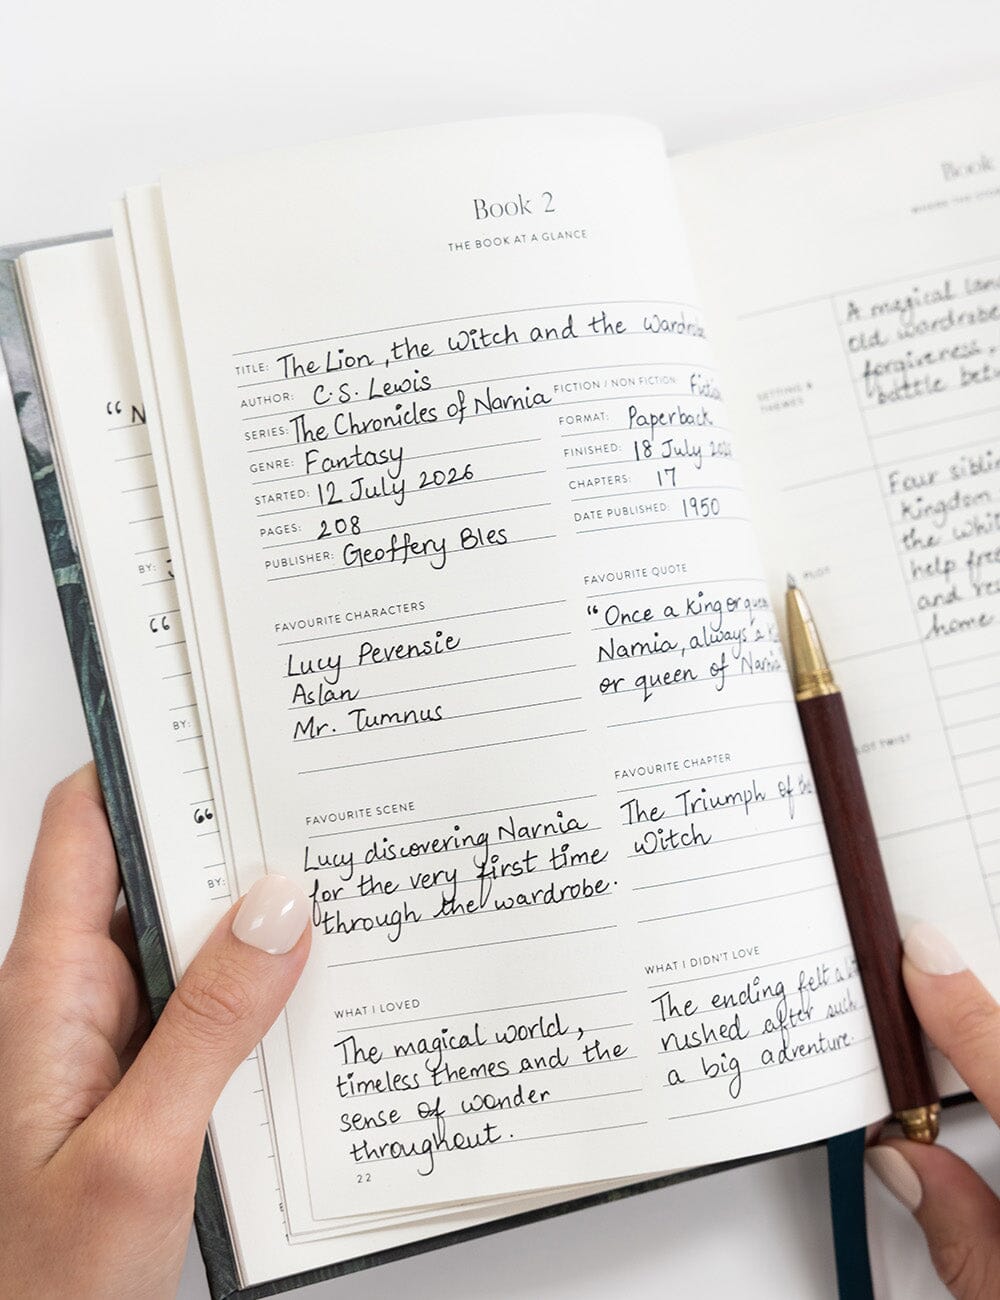 Book 2
THE BOOK AT A GLANCE
TITLE: The Lion, the Witch and the Wardrobe
AUTHOR: C.S. Lewis
SERIES: The Chronicles of Narnia
FICTION / NON FICTION
GENRE: Fantasy
FORMAT: Paperback
STARTED: 12 July 2026
FINISHED: 18 July
PAGES: 208
CHAPTERS: 17
PUBLISHER: Geoffery Bles
DATE PUBLISHED: 1950
FAVOURITE CHARACTERS
Lucy Pevensie
Aslan
Mr. Tumnus
FAVOURITE QUOTE
"Once a king or
Narnia, always a
or queen of Narnia
FAVOURITE SCENE
Lucy discovering Narnia
for the very first time
through the wardrobe.
FAVOURITE CHAPTER
The Triumph of
Witch
WHAT I LOVED
The magical world,
timeless themes and the
sense of wonder
throughout.
WHAT I DIDN'T LOVE
The ending felt a
rushed after such
a big adventure.
22
"N
BY:
"
BY:
"
BY:
Book
SETTING &
THEMES
A magical
old wardrobe
forgiveness.
battle
PLOT
Four
kingdom
the
help
and
home
PLOT TWIST